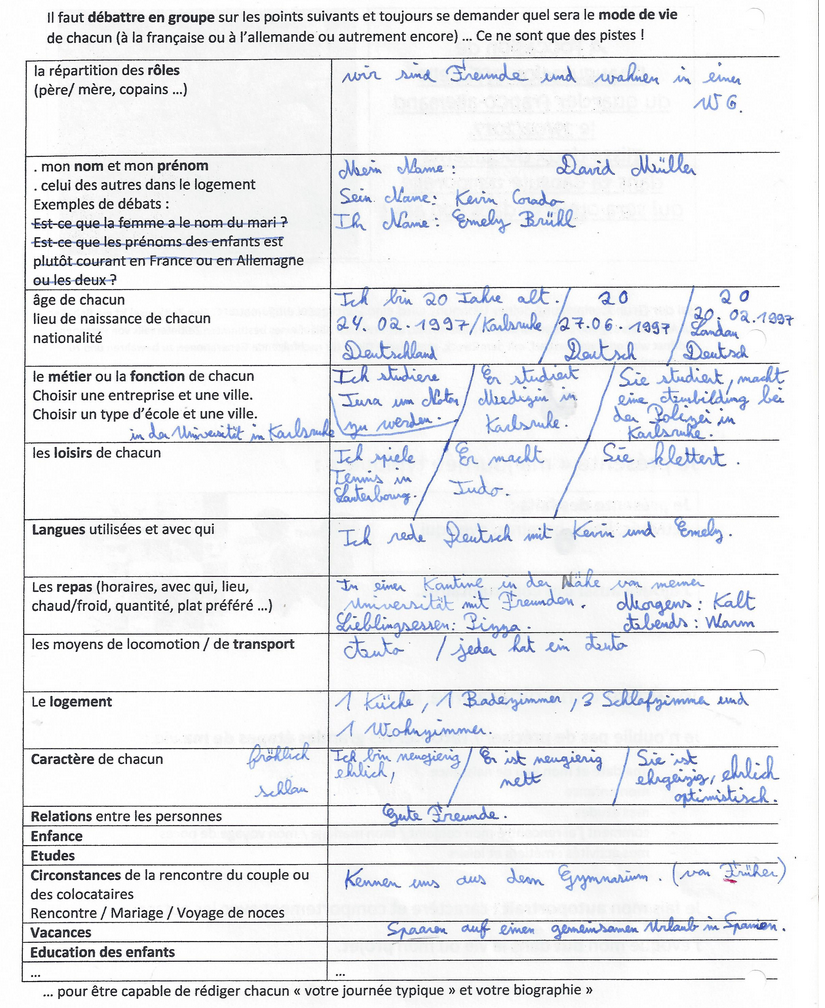 Il faut débattre en groupe sur les points suivants et toujours se demander quel sera le mode de vie
de chacun (à la française ou à l'allemande ou autrement encore) ... Ce ne sont que des pistes !
la répartition des rôles
(père/ mère, copains ...)
wir sind Freunde und wahnen in einer
WG.
. mon nom et mon prénom
. celui des autres dans le logement
Exemples de débats :
Est-ce que la femme a le nom du mari ?
Est-ce que les prénoms des enfants est
plutôt courant en France ou en Allemagne
ou les deux ?
Mein Name : David Müller
Sein Name: Kevin Corado
Ihr Name: Emely Brühl
âge de chacun
lieu de naissance de chacun
nationalité
Ich bin 20 Jahre alt. / 20 / 20
24. 02. 1997/Karlsruhe / 27.06.1997 / 20.02.1997
Landau
Deutschland / Deutsch / Deutsch
le métier ou la fonction de chacun
Choisir une entreprise et une ville.
Choisir un type d'école et une ville.
in der Universität in Karlsruhe
Ich studiere
Jura um Notar
zu werden.
Er studiert
Medizin in
Karlsruhe.
Sie studiert, macht
eine Ausbildung bei
der Polizei in
Karlsruhe.
les loisirs de chacun
Ich spiele
Tennis in
Lauterbourg.
Er macht
Judo.
Sie klettert.
Langues utilisées et avec qui
Ich rede Deutsch mit Kevin und Emely.
Les repas (horaires, avec qui, lieu,
chaud/froid, quantité, plat préféré ...)
In einer Kantine in der Nähe von meiner
Universität mit Freunden. Morgens: Kalt
Lieblingsessen: Pizza. Abends: Warm
les moyens de locomotion / de transport
Auto / jeder hat ein Auto
Le logement
1 Küche, 1 Badezimmer, 3 Schlafzimmer und
1 Wohnzimmer.
Caractère de chacun
fröhlich
schlau
Ich bin neugierig
ehrlich,
Er ist neugierig
nett
Sie ist
ehrgeizig, ehrlich
optimistisch.
Relations entre les personnes
Gute Freunde.
Enfance
Etudes
Circonstances de la rencontre du couple ou
des colocataires
Rencontre / Mariage / Voyage de noces
Kennen uns aus dem Gymnasium. (von Früher)
Vacances
Spaaren auf einen gemeinsamen Urlaub in Spanien.
Education des enfants
...
...
... pour être capable de rédiger chacun « votre journée typique » et votre biographie »